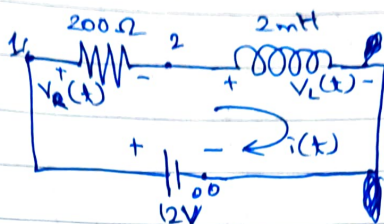 200Ω 2mH
1 2
+ - + -
V_R(t) V_L(t)
+ - i(t)
0
12V